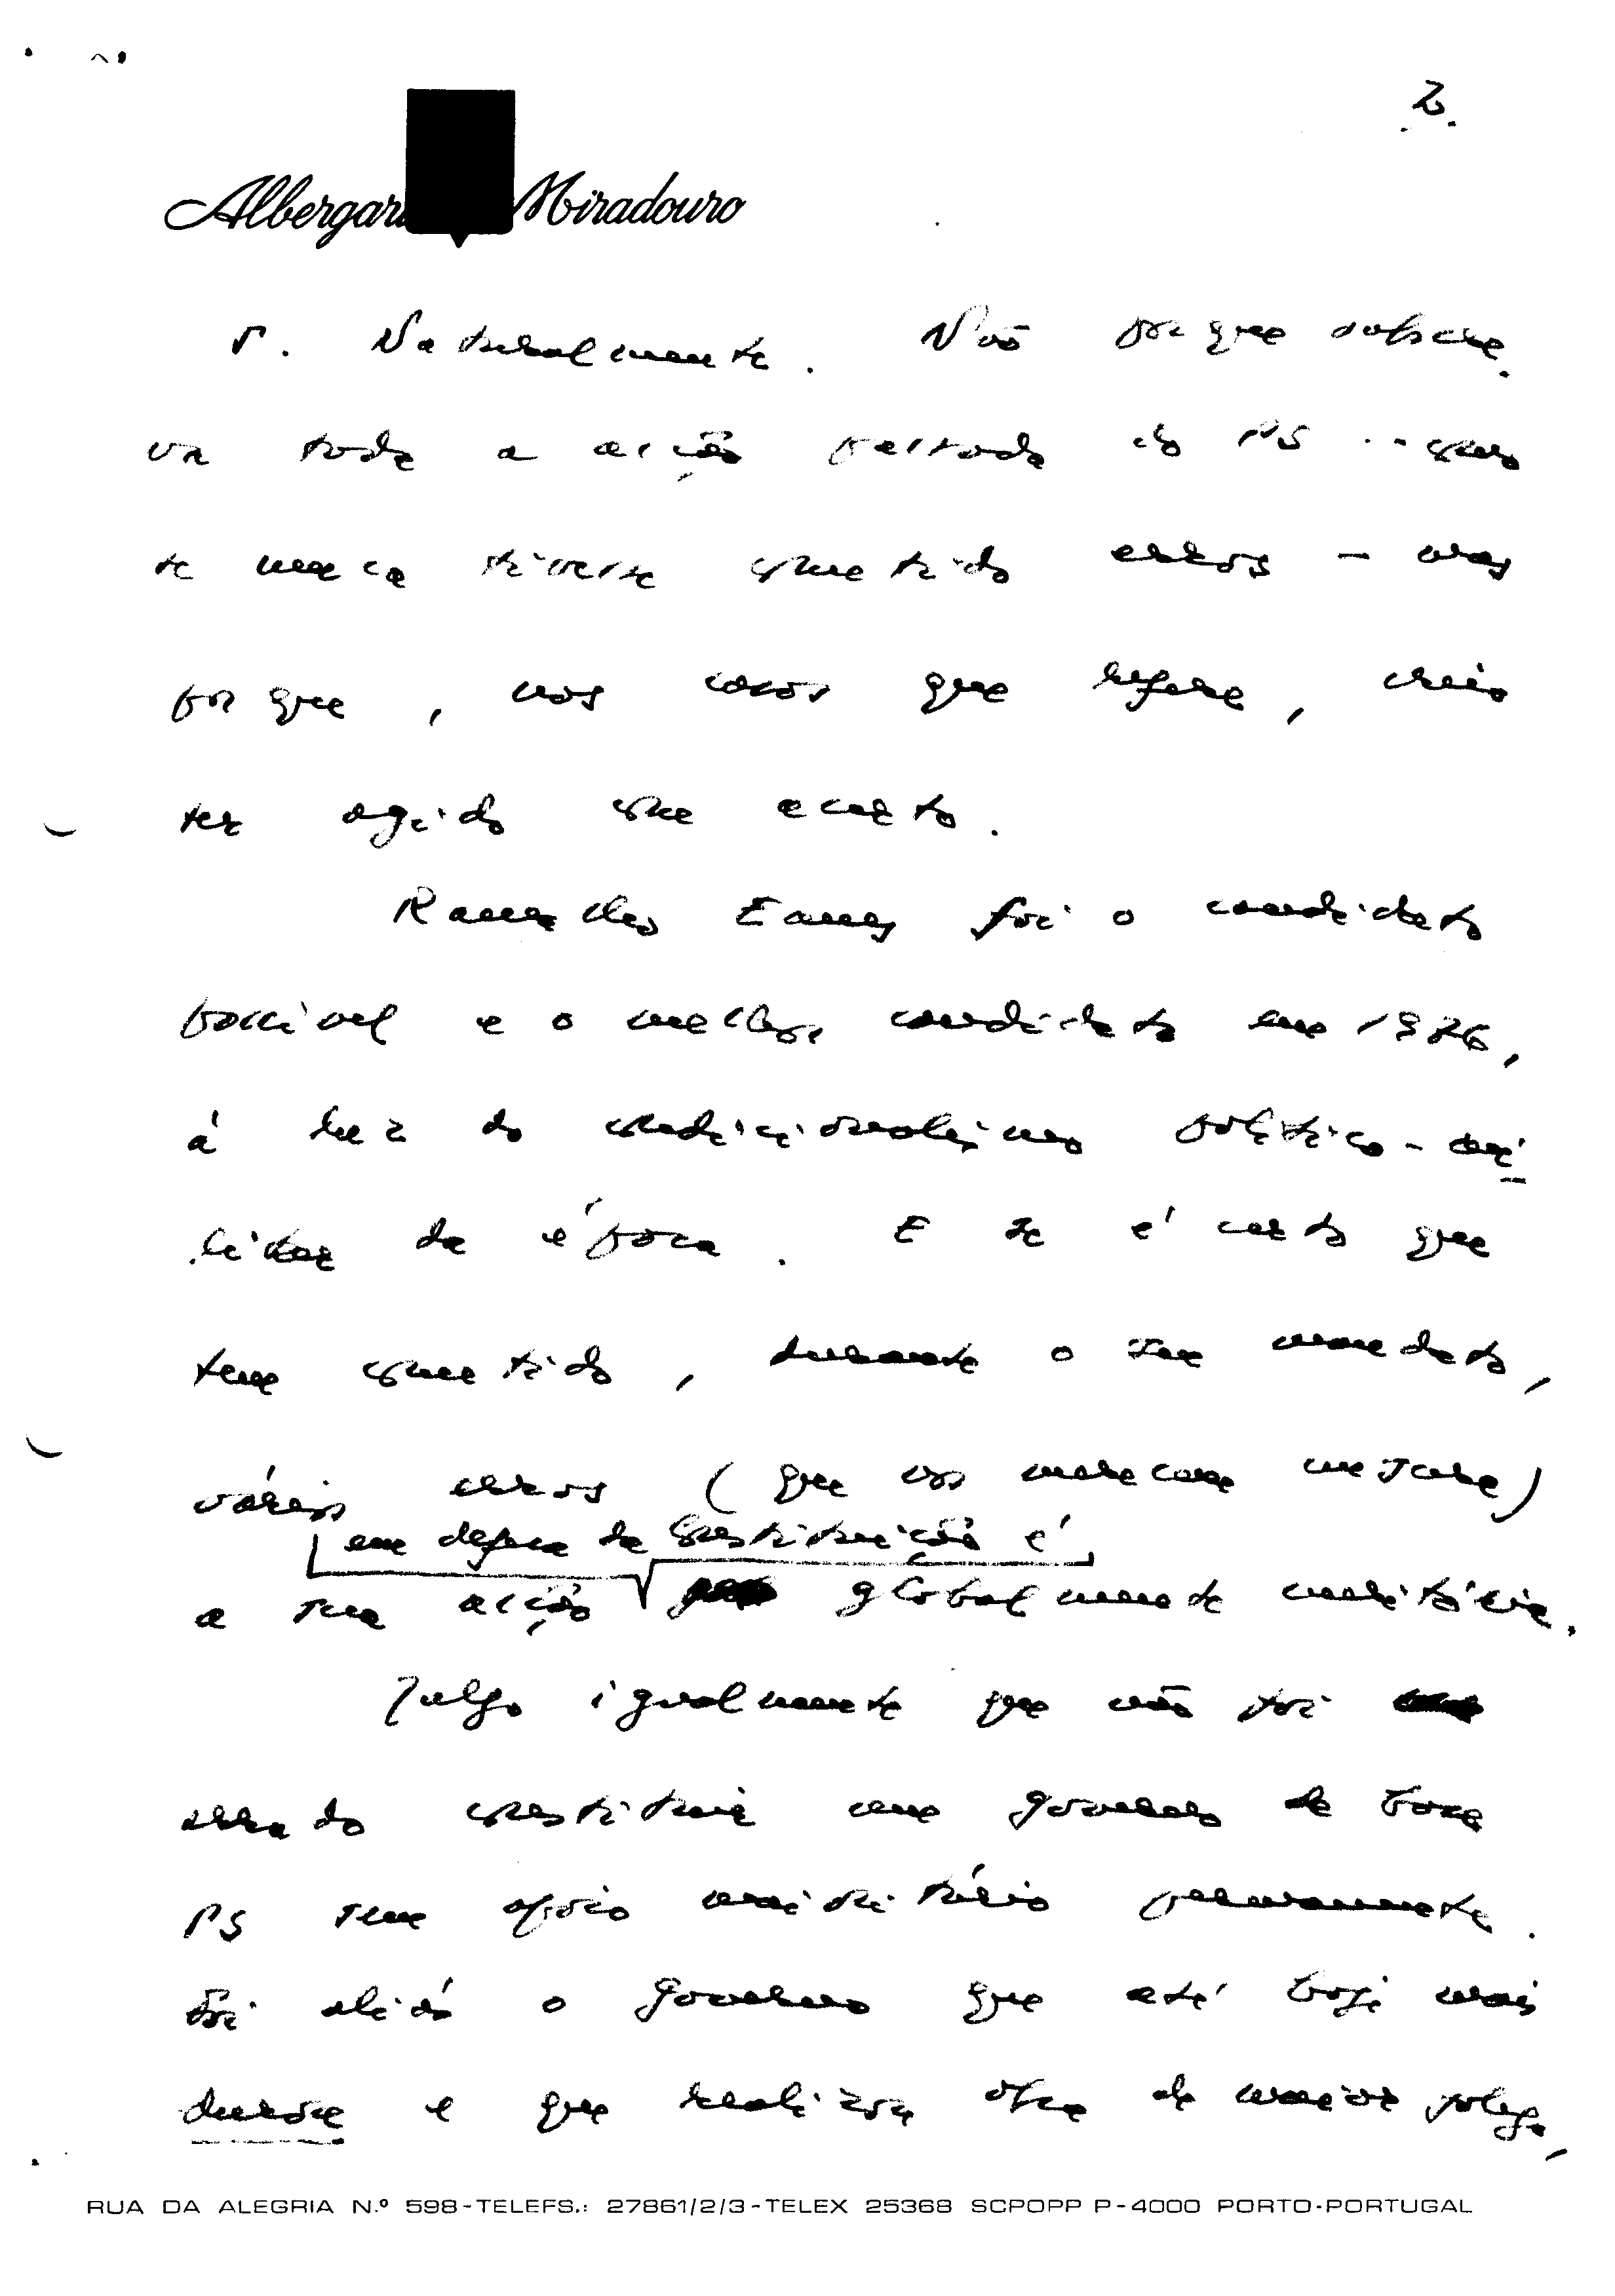 2.
Albergaria Miradouro
r. Naturalmente. Não porque subscre
va toda a acção passada do PS - que
se nunca tivesse cometido erros - mas
porque, nos casos que refere, creio
ter agido com acerto.
Ramalho Eanes foi o candidato
possível e o melhor candidato em 1976,
à luz do condicionalismo político-mi
litar da época. E se é certo que
tem cometido, durante o seu mandato,
vários erros (que os merecem censura)
em defesa da Constituição é
a sua acção globalmente meritória.
Julgo igualmente que não foi
errado constituir um governo de base
PS sem apoio maioritário permanente.
Foi aliás o governo que até hoje mais
durou e que realizou obra de maior fôlego,
RUA DA ALEGRIA N.º 598-TELEFS.: 27861/2/3-TELEX 25368 SCPOPP P-4000 PORTO-PORTUGAL